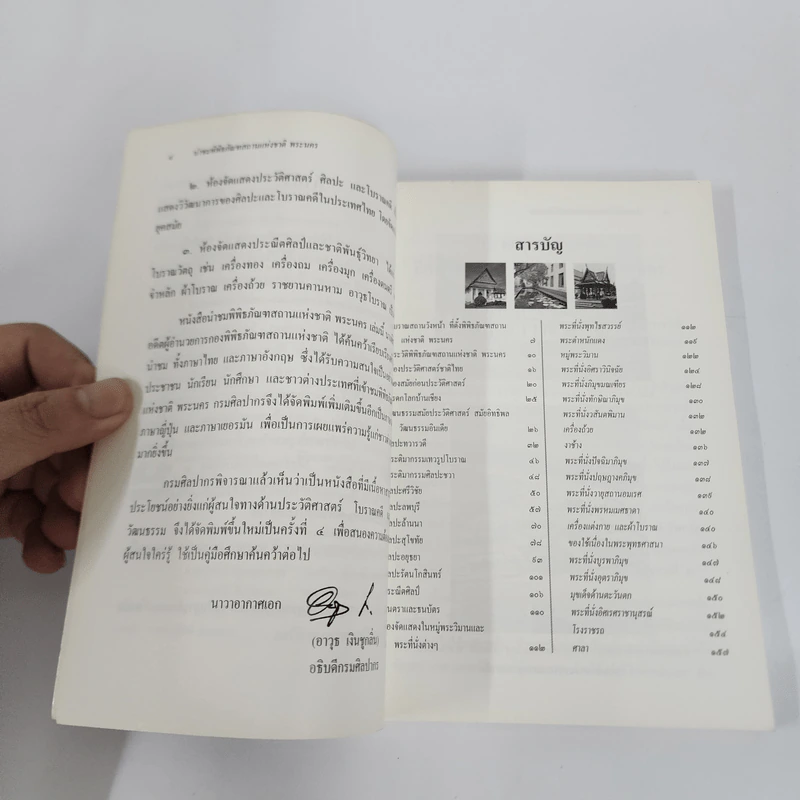 นำชมพิพิธภัณฑสถานแห่งชาติ พระนคร
๒. ห้องจัดแสดงประวัติศาสตร์ ศิลปะ และโบราณคดี
แสดงวิวัฒนาการของศิลปะและโบราณคดีในประเทศไทย
ยุคสมัย
๓. ห้องจัดแสดงประณีตศิลป์และชาติพันธุ์วิทยา
โบราณวัตถุ เช่น เครื่องทอง เครื่องถม เครื่องมุก เครื่องดนตรี
จำหลัก ผ้าโบราณ เครื่องถ้วย ราชยานคานหาม อาวุธโบราณ
หนังสือนำชมพิพิธภัณฑสถานแห่งชาติ พระนคร เล่มนี้
อดีตผู้อำนวยการกองพิพิธภัณฑสถานแห่งชาติ ได้ค้นคว้าเรียบเรียง
นำชม ทั้งภาษาไทย และภาษาอังกฤษ ซึ่งได้รับความสนใจเป็น
ประชาชน นักเรียน นักศึกษา และชาวต่างประเทศที่เข้าชมพิพิธภัณฑ
แห่งชาติ พระนคร กรมศิลปากรจึงได้จัดพิมพ์เพิ่มเติมขึ้นอีกเป็น
ภาษาญี่ปุ่น และภาษาเยอรมัน เพื่อเป็นการเผยแพร่ความรู้แก่ชาว
มากยิ่งขึ้น
กรมศิลปากรพิจารณาแล้วเห็นว่าเป็นหนังสือที่มีเนื้อหา
ประโยชน์อย่างยิ่งแก่ผู้สนใจทางด้านประวัติศาสตร์ โบราณคดี
วัฒนธรรม จึงได้จัดพิมพ์ขึ้นใหม่เป็นครั้งที่ ๔ เพื่อสนองความต้อง
ผู้สนใจใคร่รู้ ใช้เป็นคู่มือศึกษาค้นคว้าต่อไป
นาวาอากาศเอก
(อาวุธ เงินชูกลิ่น)
อธิบดีกรมศิลปากร
สารบัญ
ราณสถานวังหน้า ที่ตั้งพิพิธภัณฑสถาน
แห่งชาติ พระนคร ๗
ะวัติพิพิธภัณฑสถานแห่งชาติ พระนคร ๑๐
องประวัติศาสตร์ชาติไทย ๑๖
องสมัยก่อนประวัติศาสตร์ ๒๐
ดกโลกบ้านเชียง ๒๕
ฒนธรรมสมัยประวัติศาสตร์ สมัยอิทธิพล
วัฒนธรรมอินเดีย ๒๖
ลปะทวารวดี ๓๒
ะติมากรรมเทวรูปโบราณ ๔๖
ะติมากรรมศิลปะชวา ๔๘
ลปะศรีวิชัย ๕๐
ลปะลพบุรี ๕๗
ลปะล้านนา ๗๐
ลปะสุโขทัย ๗๘
ลปะอยุธยา ๙๓
ลปะรัตนโกสินทร์ ๑๐๑
ะณีตศิลป์ ๑๐๖
นตราและธนบัตร ๑๑๐
องจัดแสดงในหมู่พระวิมานและ
พระที่นั่งต่างๆ ๑๑๒
พระที่นั่งพุทไธสวรรย์ ๑๑๒
พระตำหนักแดง ๑๑๙
หมู่พระวิมาน ๑๒๒
พระที่นั่งอิศราวินิจฉัย ๑๒๔
พระที่นั่งภิมุขมณเฑียร ๑๒๘
พระที่นั่งทักษิณาภิมุข ๑๓๐
พระที่นั่งวสันตพิมาน ๑๓๒
เครื่องถ้วย ๑๓๒
งาช้าง ๑๓๖
พระที่นั่งปัจฉิมาภิมุข ๑๓๗
พระที่นั่งปฤษฎางคภิมุข ๑๓๘
พระที่นั่งวายุสถานอมเรศ ๑๓๙
พระที่นั่งพรหมเมศธาดา ๑๔๐
เครื่องแต่งกาย และผ้าโบราณ ๑๔๐
ของใช้เนื่องในพระพุทธศาสนา ๑๔๖
พระที่นั่งบูรพาภิมุข ๑๔๗
พระที่นั่งอุตราภิมุข ๑๔๘
มุขเด็จด้านตะวันตก ๑๕๐
พระที่นั่งอิศเรศราชานุสรณ์ ๑๕๒
โรงราชรถ ๑๕๔
ศาลา ๑๕๗